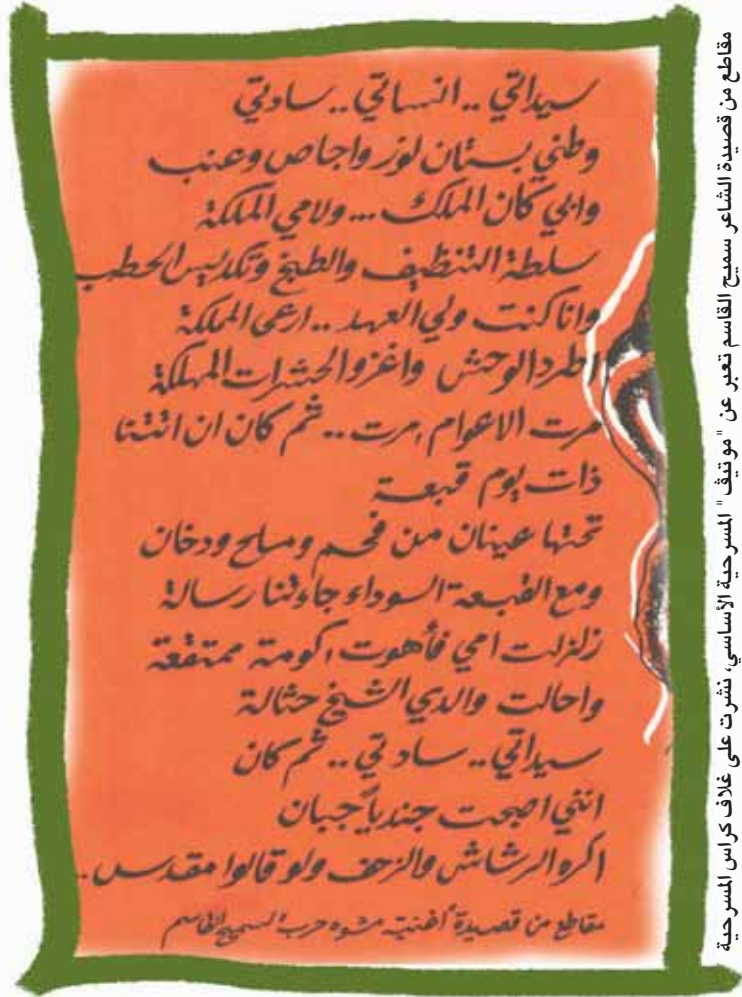 سيداتي .. انساتي .. سادتي
وطني بستان لوز واجاص وعنب
وابي كان الملك ... ولامي المملكة
سلطة التنظيف والطبخ وتكديس الحطب
وانا كنت ولي العهد .. ارعى المملكة
اطرد الوحش واغزو الحشرات المهلكة
مرت الاعوام، مرت .. ثم كان ان اتتنا
ذات يوم قبعة
تحتها عينان من فحم وملح ودخان
ومع القبعة السوداء جاءتنا رسالة
زلزلت امي فأهوت، كومة ممتقعة
واحالت والدي الشيخ حثالة
سيداتي .. سادتي .. ثم كان
انني اصبحت جندياً جبان
اكره الرشاش والزحف ولو قالوا مقدس .
مقاطع من قصيدة أغنية مشوه حرب لسميح القاسم
مقاطع من قصيدة الشاعر سميح القاسم تعبر عن "موتيڤ" المسرحية الأساسي، نشرت على غلاف كراس المسرحية